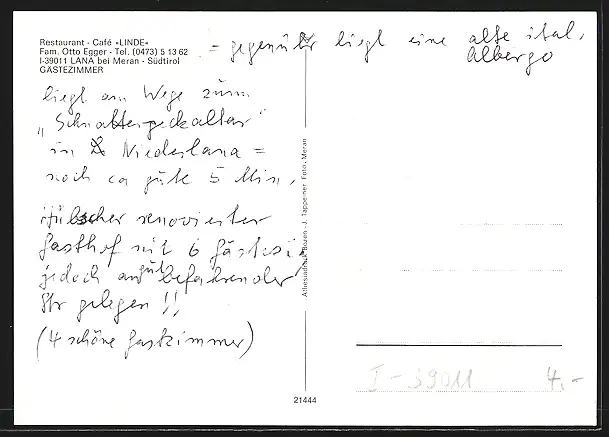 Restaurant - Café »LINDE«
Fam. Otto Egger - Tel. (0473) 5 13 62
I-39011 LANA bei Meran - Südtirol
GÄSTEZIMMER
= gegenüber liegt eine alte ital.
Albergo
liegt am Wege zum
"Schnatterpeckaltar"
in Niederlana =
noch ca gute 5 Min,
hübscher renovierter
Gasthof mit 6 Gästezi,
jedoch an gut befahrender
Str gelegen !!
(4 schöne Gastzimmer)
Athesiadruck Bozen - J. Tappeiner Foto, Meran
I - 39011
4,-
21444